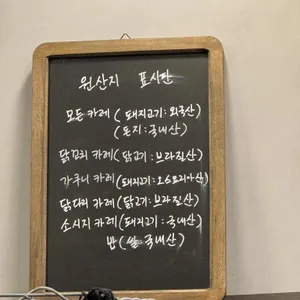 원산지 표시판
모든 카레 ( 돼지고기 : 외국산 )
( 돈지 : 국내산 )
닭꼬치 카레 ( 닭고기 : 브라질산 )
가쿠니 카레 (돼지고기 : 오스트리아산)
닭다리 카레 (닭고기 : 브라질산 )
소시지 카레 (돼지고기 : 국내산 )
밥 ( 쌀 국내산 )